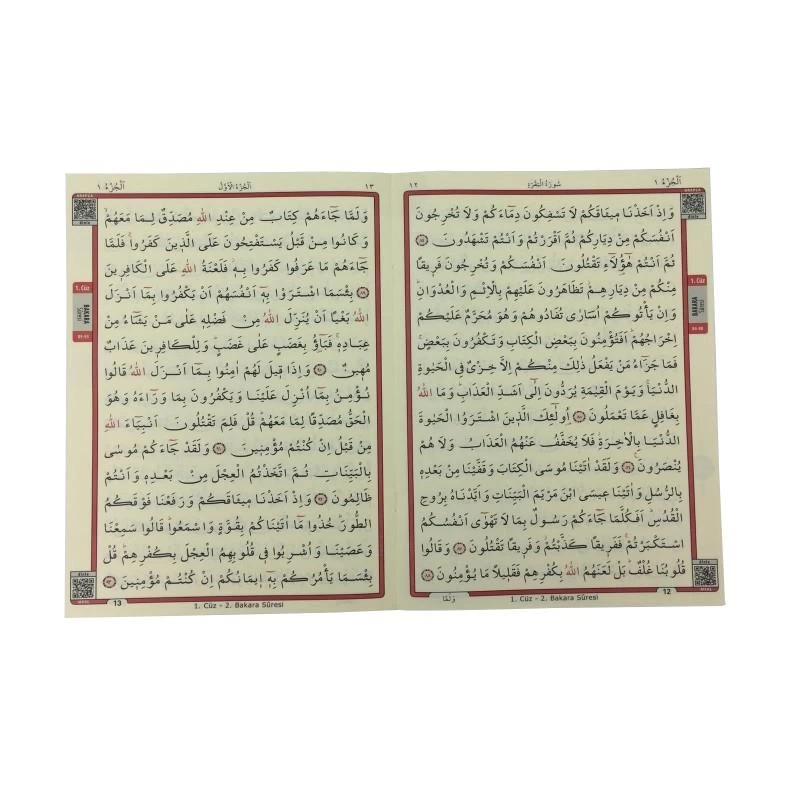 اَلْجُزْءُ ١
سُورَةُ الْبَقَرَةِ
١٢
وَاِذْ اَخَذْنَا مٖيثَاقَكُمْ لَا تَسْفِكُونَ دِمَٓاءَكُمْ وَلَا تُخْرِجُونَ
اَنْفُسَكُمْ مِنْ دِيَارِكُمْ ثُمَّ اَقْرَرْتُمْ وَاَنْتُمْ تَشْهَدُونَ ﴿٨٤﴾
ثُمَّ اَنْتُمْ هٰٓؤُ۬لَٓاءِ تَقْتُلُونَ اَنْفُسَكُمْ وَتُخْرِجُونَ فَرٖيقًا
مِنْكُمْ مِنْ دِيَارِهِمْ تَظَاهَرُونَ عَلَيْهِمْ بِالْاِثْمِ وَالْعُدْوَانِ
وَاِنْ يَأْتُوكُمْ اُسَارٰى تُفَادُوهُمْ وَهُوَ مُحَرَّمٌ عَلَيْكُمْ
اِخْرَاجُهُمْ اَفَتُؤْمِنُونَ بِبَعْضِ الْكِتَابِ وَتَكْفُرُونَ بِبَعْضٍ
فَمَا جَزَٓاءُ مَنْ يَفْعَلُ ذٰلِكَ مِنْكُمْ اِلَّا خِزْيٌ فِي الْحَيٰوةِ
الدُّنْيَا وَيَوْمَ الْقِيٰمَةِ يُرَدُّونَ اِلٰٓى اَشَدِّ الْعَذَابِ وَمَا اللّٰهُ
بِغَافِلٍ عَمَّا تَعْمَلُونَ ﴿٨٥﴾ اُو۬لٰٓئِكَ الَّذٖينَ اشْتَرَوُا الْحَيٰوةَ
الدُّنْيَا بِالْاٰخِرَةِ فَلَا يُخَفَّفُ عَنْهُمُ الْعَذَابُ وَلَا هُمْ
يُنْصَرُونَ ﴿٨٦﴾ وَلَقَدْ اٰتَيْنَا مُوسَى الْكِتَابَ وَقَفَّيْنَا مِنْ بَعْدِهٖ
بِالرُّسُلِ وَاٰتَيْنَا عٖيسَى ابْنَ مَرْيَمَ الْبَيِّنَاتِ وَاَيَّدْنَاهُ بِرُوحِ
الْقُدُسِ اَفَكُلَّمَا جَٓاءَكُمْ رَسُولٌ بِمَا لَا تَهْوٰٓى اَنْفُسُكُمُ
اسْتَكْبَرْتُمْ فَفَرٖيقًا كَذَّبْتُمْ وَفَرٖيقًا تَقْتُلُونَ ﴿٨٧﴾ وَقَالُوا
قُلُوبُنَا غُلْفٌ بَلْ لَعَنَهُمُ اللّٰهُ بِكُفْرِهِمْ فَقَلٖيلًا مَا يُؤْمِنُونَ ﴿٨٨﴾
1. Cüz
BAKARA
Sûresi
84-88
وَلَمَّا
1. Cüz - 2. Bakara Sûresi
12
اَلْجُزْءُ ١
اَلْجُزْءُ الْاَوَّلُ
١٣
وَلَمَّا جَٓاءَهُمْ كِتَابٌ مِنْ عِنْدِ اللّٰهِ مُصَدِّقٌ لِمَا مَعَهُمْ
وَكَانُوا مِنْ قَبْلُ يَسْتَفْتِحُونَ عَلَى الَّذٖينَ كَفَرُوا فَلَمَّا
جَٓاءَهُمْ مَا عَرَفُوا كَفَرُوا بِهٖ فَلَعْنَةُ اللّٰهِ عَلَى الْكَافِرٖينَ
﴿٨٩﴾ بِئْسَمَا اشْتَرَوْا بِهٖٓ اَنْفُسَهُمْ اَنْ يَكْفُرُوا بِمَٓا اَنْزَلَ
اللّٰهُ بَغْيًا اَنْ يُنَزِّلَ اللّٰهُ مِنْ فَضْلِهٖ عَلٰى مَنْ يَشَٓاءُ مِنْ
عِبَادِهٖ فَبَٓاؤُ۫ بِغَضَبٍ عَلٰى غَضَبٍ وَلِلْكَافِرٖينَ عَذَابٌ
مُهٖينٌ ﴿٩٠﴾ وَاِذَا قٖيلَ لَهُمْ اٰمِنُوا بِمَٓا اَنْزَلَ اللّٰهُ قَالُوا
نُؤْمِنُ بِمَٓا اُنْزِلَ عَلَيْنَا وَيَكْفُرُونَ بِمَا وَرَٓاءَهُ وَهُوَ
الْحَقُّ مُصَدِّقًا لِمَا مَعَهُمْ قُلْ فَلِمَ تَقْتُلُونَ اَنْبِيَٓاءَ اللّٰهِ
مِنْ قَبْلُ اِنْ كُنْتُمْ مُؤْمِنٖينَ ﴿٩١﴾ وَلَقَدْ جَٓاءَكُمْ مُوسٰى
بِالْبَيِّنَاتِ ثُمَّ اتَّخَذْتُمُ الْعِجْلَ مِنْ بَعْدِهٖ وَاَنْتُمْ
ظَالِمُونَ ﴿٩٢﴾ وَاِذْ اَخَذْنَا مٖيثَاقَكُمْ وَرَفَعْنَا فَوْقَكُمُ
الطُّورَ خُذُوا مَٓا اٰتَيْنَاكُمْ بِقُوَّةٍ وَاسْمَعُوا قَالُوا سَمِعْنَا
وَعَصَيْنَا وَاُشْرِبُوا فٖي قُلُوبِهِمُ الْعِجْلَ بِكُفْرِهِمْ قُلْ
بِئْسَمَا يَأْمُرُكُمْ بِهٖٓ اٖيمَانُكُمْ اِنْ كُنْتُمْ مُؤْمِنٖينَ ﴿٩٣﴾
1. Cüz
BAKARA
Sûresi
89-93
13
1. Cüz - 2. Bakara Sûresi